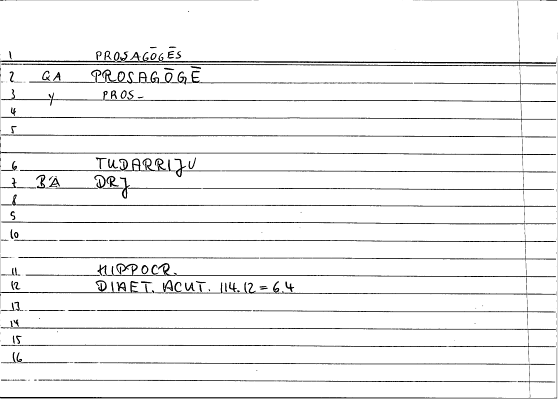 1 PROSAGŌGĒS
2 QA PROSAGŌGĒ
3 y PROS-
4
5
6 TUDARRIJU
7 BA DRJ
8
9
10
11 HIPPOCR.
12 DIAET. ACUT. 114.12 = 6.4
13
14
15
16